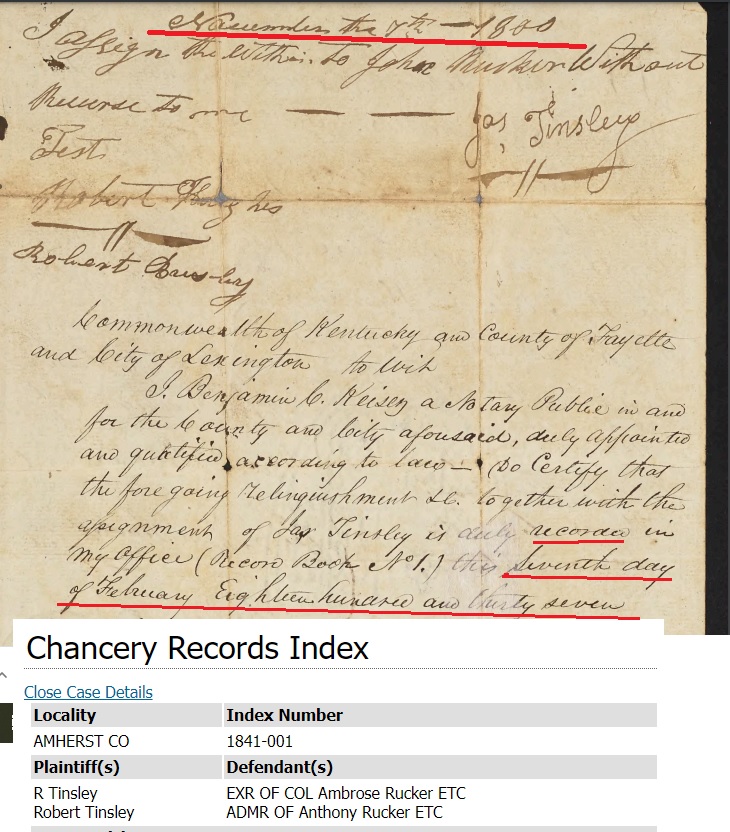 November the 7th — 1800
I assign the within to John Rucker Without
Recurse to me — — Jas Tinsley
Test
Robert Hughes
Robert
Commonwealth of Kentucky and County of Fayette
and City of Lexington to wit
I. Benjamin C. Keisey a Notary Public in and
for the County and City aforesaid, duly appointed
and qualified according to law — Do Certify that
the foregoing relinquishment &c. together with the
assignment of Jas Tinsley is duly recorded in
my office (Record Book No 1.) this Seventh day
of February Eighteen hundred and thirty seven
Chancery Records Index
Close Case Details
Locality Index Number
AMHERST CO 1841-001
Plaintiff(s) Defendant(s)
R Tinsley EXR OF COL Ambrose Rucker ETC
Robert Tinsley ADMR OF Anthony Rucker ETC